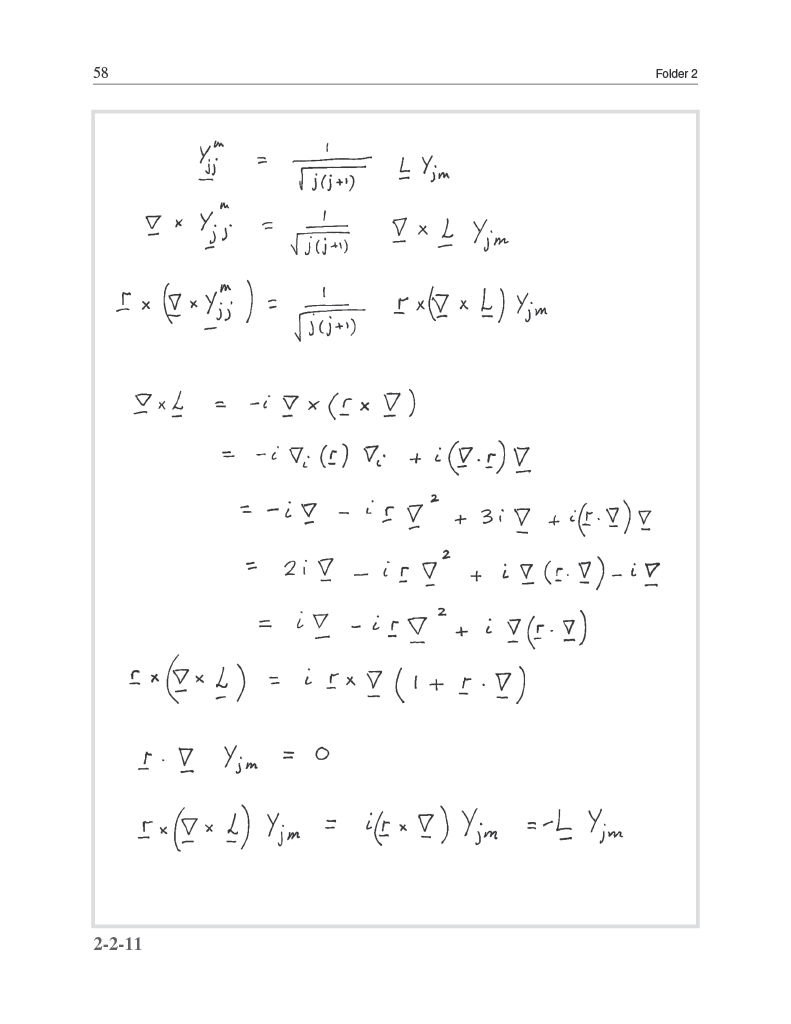 58 Folder 2
Y̲ⱼⱼᵐ = 1/√(j(j+1)) L̲ Yⱼₘ
∇̲ × Y̲ⱼⱼᵐ = 1/√(j(j+1)) ∇̲ × L̲ Yⱼₘ
r̲ × (∇̲ × Y̲ⱼⱼᵐ) = 1/√(j(j+1)) r̲ × (∇̲ × L̲) Yⱼₘ
∇̲ × L̲ = -i ∇̲ × (r̲ × ∇̲)
= -i ∇ᵢ (r̲) ∇ᵢ + i(∇̲ · r̲) ∇̲
= -i ∇̲ - i r̲ ∇̲² + 3i ∇̲ + i(r̲ · ∇̲) ∇̲
= 2i ∇̲ - i r̲ ∇̲² + i ∇̲ (r̲ · ∇̲) - i ∇̲
= i ∇̲ - i r̲ ∇̲² + i ∇̲ (r̲ · ∇̲)
r̲ × (∇̲ × L̲) = i r̲ × ∇̲ (1 + r̲ · ∇̲)
r̲ · ∇̲ Yⱼₘ = 0
r̲ × (∇̲ × L̲) Yⱼₘ = i(r̲ × ∇̲) Yⱼₘ = -L̲ Yⱼₘ
2-2-11